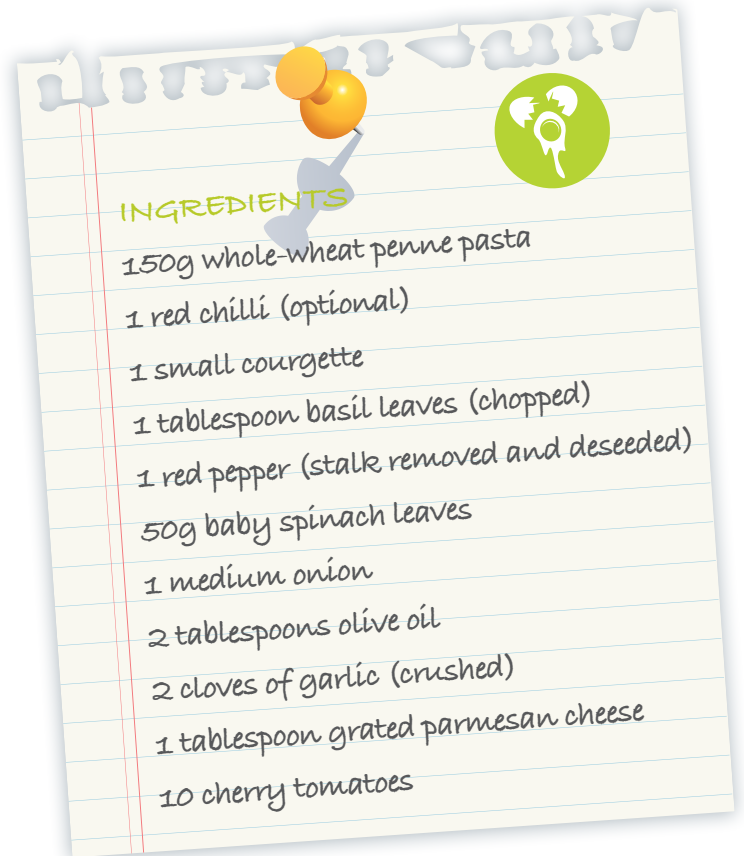 INGREDIENTS
150g whole-wheat penne pasta
1 red chilli (optional)
1 small courgette
1 tablespoon basil leaves (chopped)
1 red pepper (stalk removed and deseeded)
50g baby spinach leaves
1 medium onion
2 tablespoons olive oil
2 cloves of garlic (crushed)
1 tablespoon grated parmesan cheese
10 cherry tomatoes